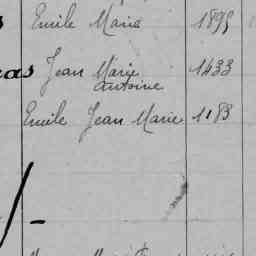 Emile Marie 1895
as Jean Marie 1433
antoine
Emile Jean Marie 1183